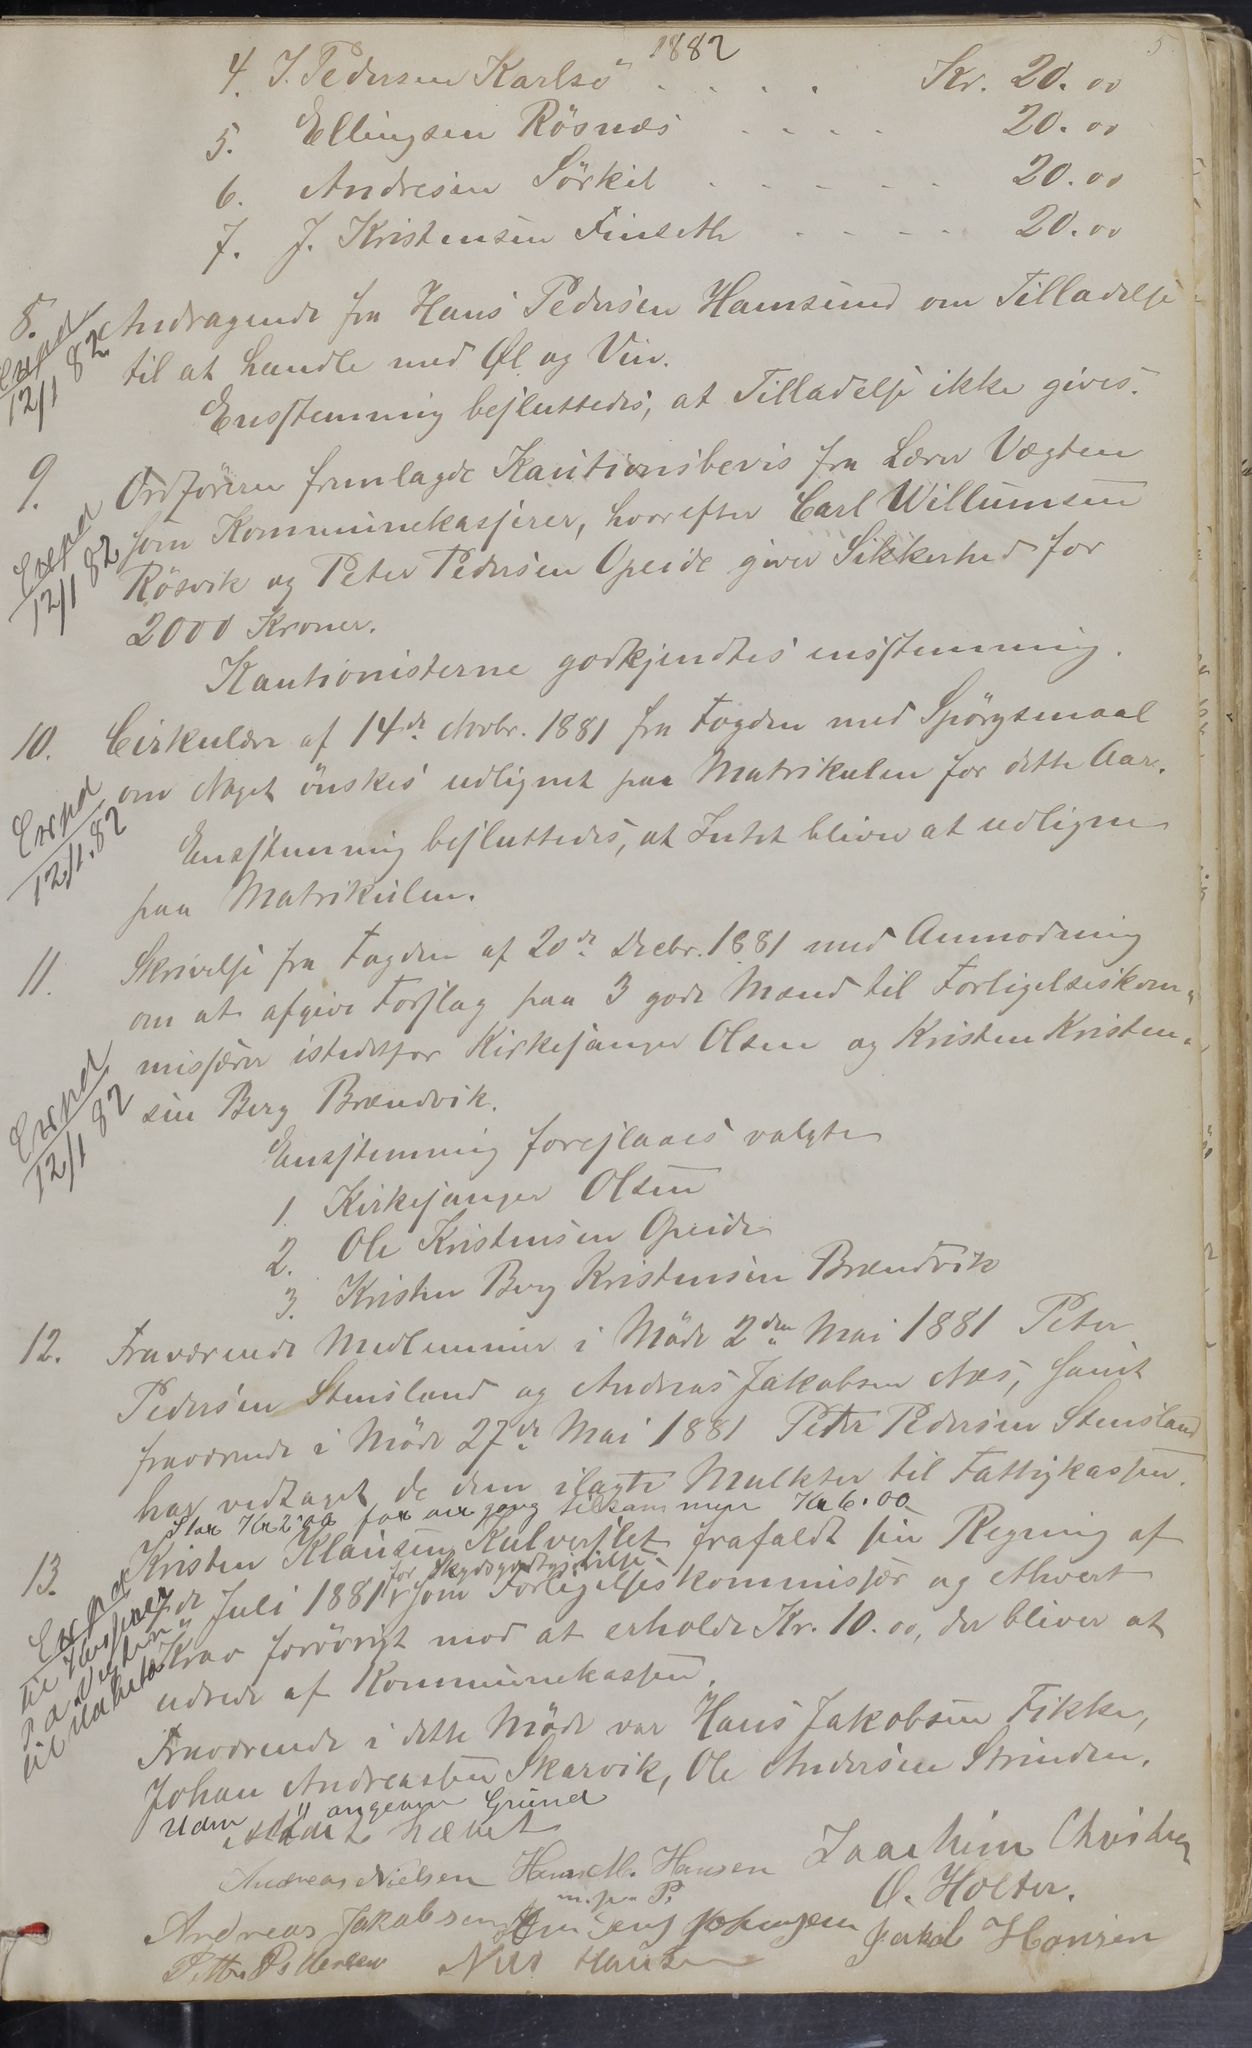 1882
5
4. J. Pedersen Karlsö . . . . Kr. 20.00
5. Ellingsen Rösnæs . . . . 20.00
6. Andresen Sörkil . . . . . . 20.00
7. J. Kristensen Finseth . . . . 20.00
8. Andragende fra Hans Pedersen Hamsund om Tilladelse
Exped
12/1 82
til at handle med Øl og Vin.
Enstemmig besluttedes, at Tilladelse ikke gives.
9. Ordföreren fremlagde Kautionsbevis fra Lærer Vægten
som Kommunekasserer, hvorefter Carl Willumsen
Exped
12/1 82
Rösvik og Peter Pedersen Opeide giver Sikkerhed for
2000 Kroner.
Kautionisterne godkjendtes enstemmig.
10. Cirkulære af 14de Novbr. 1881 fra Fogden med Spörgsmaal
om Noget önskes udlignet paa Matrikulen for dette Aar.
Exped
12/1.82
Enstemmig besluttedes, at Intet bliver at udligne
paa Matrikulen.
11. Skrivelse fra Fogden af 20de Decbr. 1881 med Anmodning
om at afgive Forslag paa 3 gode Mænd til Forligelseskom-
missærer istedetfor Kirkesanger Olsen og Kristen Kristen-
Exped
12/1 82
sen Berg Brændvik.
Enstemmig foreslaaes valgte
1. Kirkesanger Olsen
2. Ole Kristensen Opeide
3. Kristen Berg Kristensen Brændvik
12. Fraværende Medlemmer i Möde 2den Mai 1881 Peter
Pedersen Stensland og Andreas Jakobsen Næs, samt
fraværende i Möde 27de Mai 1881 Peter Pedersen Stensland
har vedtaget de dem ilagte Mulkter til Fattigkassen.
Stor Kr 2.00 for een gang tilsammen Kr 6.00
13. Kristen Klausen Kulverslet frafaldt sin Regning af
for Skydsgodtgjörelse
Juli 1881 som Forligelseskommissær og ethvert
Exped
til Kasserer
Krav forövrigt mod at erholde Kr. 10.00, der bliver at
udrede af Kommunekassen.
Fraværende i dette Möde var Hans Jakobsen Fikke,
Johan Andreassen Skarvik, Ole Andersen Strinden.
Uden angeven Grund
Mödet hævet
Andreas Nielsen Hans M. Hansen Joachim Christensen
m. paa P. O. Holter.
Andreas Jakobsen Jens Johnsen Jakob Hansen
Petter Pedersen Nils Hansen